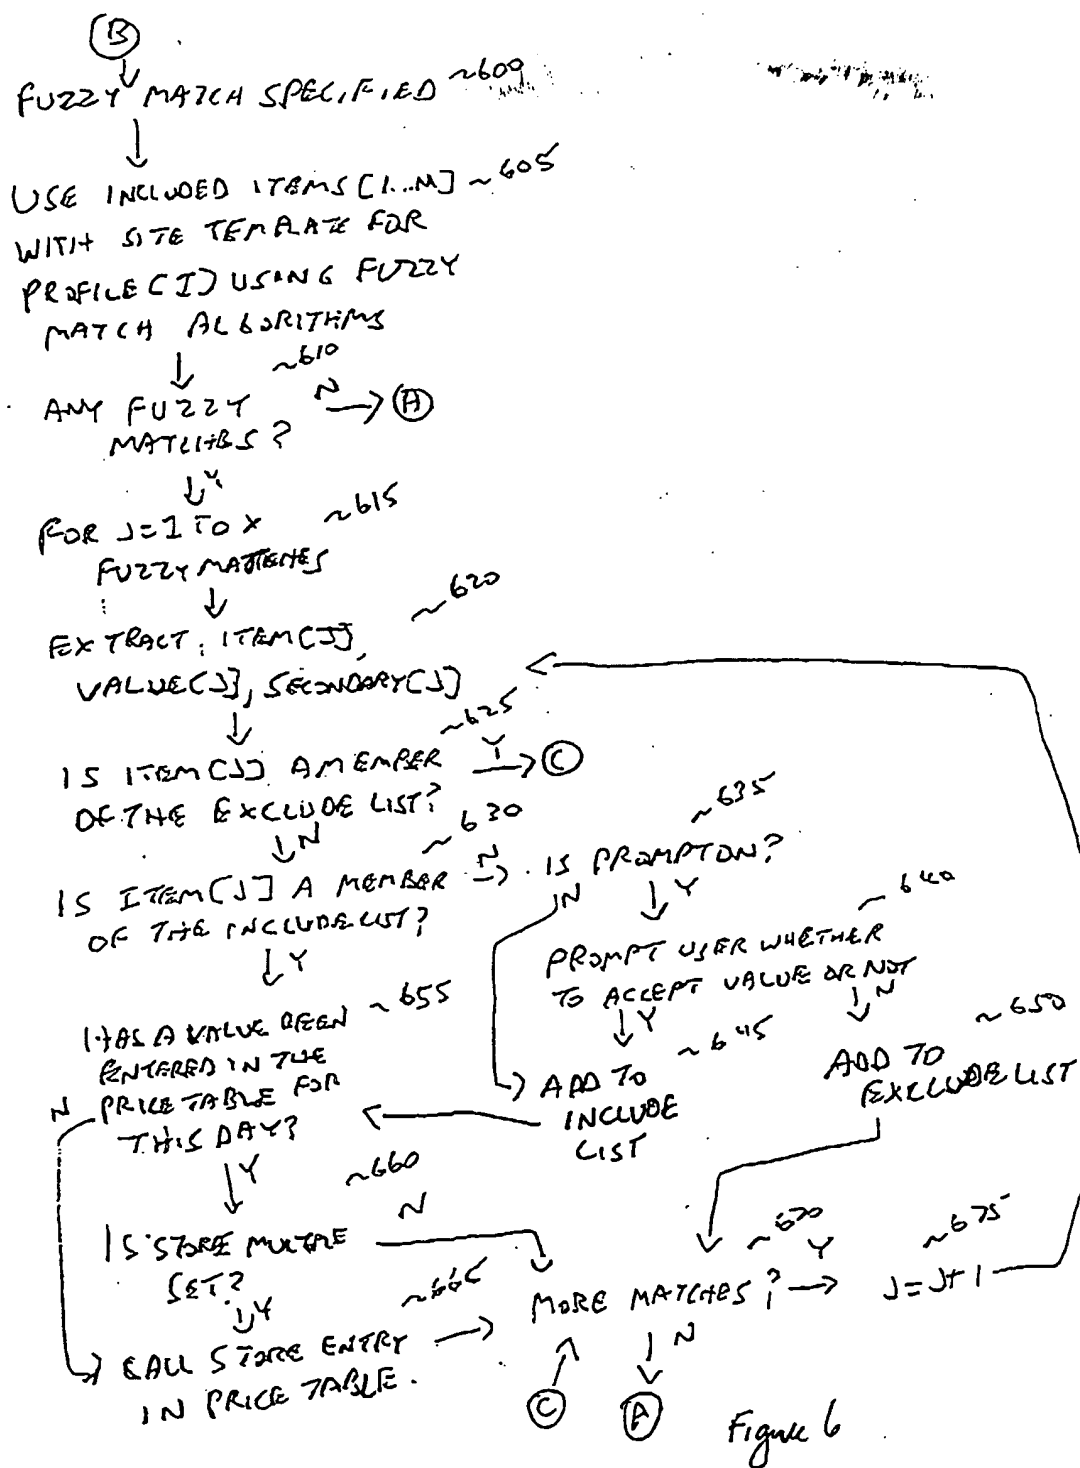 B
FUZZY MATCH SPECIFIED ~600
USE INCLUDED ITEMS [1...M] ~605
WITH SITE TEMPLATE FOR
PROFILE [I] USING FUZZY
MATCH ALGORITHMS
~610
ANY FUZZY N A
MATCHES?
Y
FOR J=1 TO X ~615
FUZZY MATCHES
~620
EXTRACT: ITEM[J],
VALUE[J], SECONDARY[J]
~625
IS ITEM[J] A MEMBER Y C
OF THE EXCLUDE LIST?
N ~630
IS ITEM[J] A MEMBER N
OF THE INCLUDE LIST?
Y
~635
IS PROMPT ON?
N Y
~640
PROMPT USER WHETHER
TO ACCEPT VALUE OR NOT
Y N
~645
ADD TO
INCLUDE
LIST
~650
ADD TO
EXCLUDE LIST
HAS A VALUE BEEN ~655
ENTERED IN THE
PRICE TABLE FOR
THIS DAY?
N
Y
~660
IS STORE MULTIPLE N
SET?
Y
~665
CALL STORE ENTRY
IN PRICE TABLE.
~670
MORE MATCHES? Y
~675
J=J+1
N
C A
Figure 6